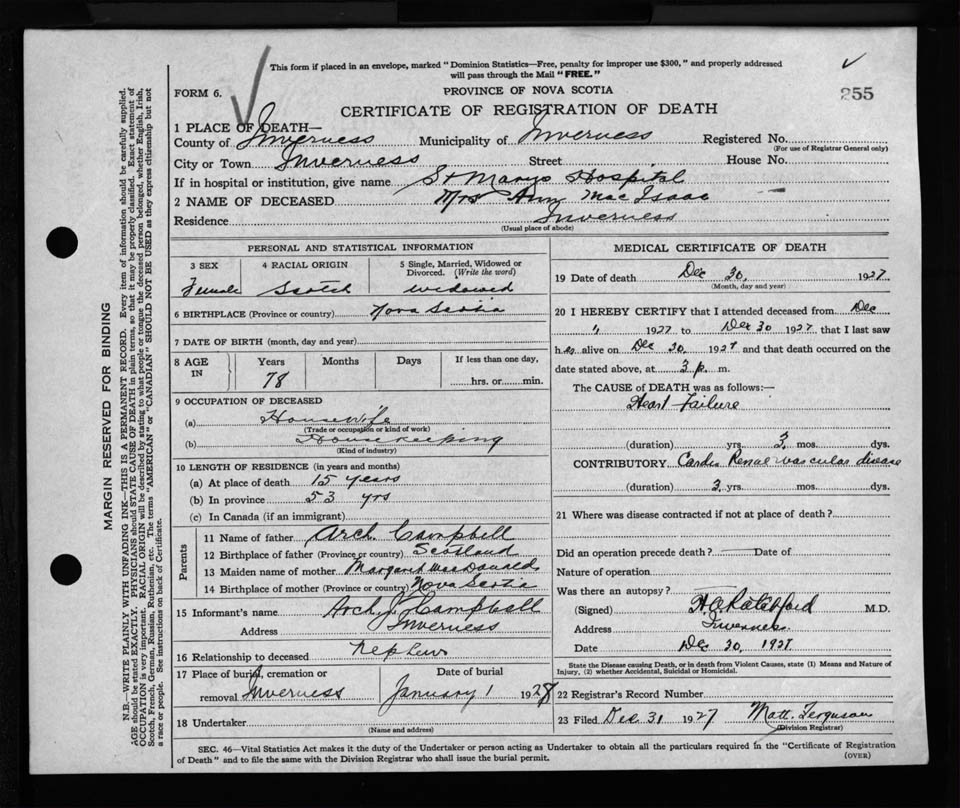 This form if placed in an envelope, marked "Dominion Statistics—Free, penalty for improper use $300," and properly addressed
will pass through the Mail "FREE."
FORM 6.
PROVINCE OF NOVA SCOTIA
255
CERTIFICATE OF REGISTRATION OF DEATH
1 PLACE OF DEATH—
County of Inverness Municipality of Inverness Registered No.
(For use of Registrar General only)
City or Town Inverness Street House No.
If in hospital or institution, give name St Marys Hospital
2 NAME OF DECEASED Mrs Ann MacIsaac
Residence Inverness
(Usual place of abode)
PERSONAL AND STATISTICAL INFORMATION
3 SEX 4 RACIAL ORIGIN 5 Single, Married, Widowed or
Divorced. (Write the word)
Female Scotch widowed
6 BIRTHPLACE (Province or country) Nova Scotia
7 DATE OF BIRTH (month, day and year)
8 AGE IN Years Months Days If less than one day,
78 hrs. or min.
9 OCCUPATION OF DECEASED
(a) Housewife
(Trade or occupation or kind of work)
(b) Housekeeping
(Kind of industry)
10 LENGTH OF RESIDENCE (in years and months)
(a) At place of death 15 years
(b) In province 53 yrs
(c) In Canada (if an immigrant)
Parents
11 Name of father Arch. Campbell
12 Birthplace of father (Province or country) Scotland
13 Maiden name of mother Margaret MacDonald
14 Birthplace of mother (Province or country) Nova Scotia
15 Informant's name Archy J. Campbell
Address Inverness
16 Relationship to deceased Nephew
17 Place of burial, cremation or Date of burial
removal Inverness January 1 1928
18 Undertaker
(Name and address)
MEDICAL CERTIFICATE OF DEATH
19 Date of death Dec 30, 1927
(Month, day and year)
20 I HEREBY CERTIFY that I attended deceased from Dec
" 1927 to Dec 30 1927, that I last saw
her alive on Dec 30 1927 and that death occurred on the
date stated above, at 3 p. m.
The CAUSE of DEATH was as follows:—
Heart Failure
(duration) yrs. 3 mos. dys.
CONTRIBUTORY Cardio Renal vascular disease
(duration) 3 yrs. mos. dys.
21 Where was disease contracted if not at place of death?
Did an operation precede death? Date of
Nature of operation
Was there an autopsy?
(Signed) M.D.
Address Inverness
Date Dec 30, 1927
State the Disease causing Death, or in death from Violent Causes, state (1) Means and Nature of
Injury, (2) whether Accidental, Suicidal or Homicidal.
22 Registrar's Record Number
23 Filed Dec. 31 1927 Matt. Ferguson
(Division Registrar)
SEC. 46—Vital Statistics Act makes it the duty of the Undertaker or person acting as Undertaker to obtain all the particulars required in the "Certificate of Registration
of Death" and to file the same with the Division Registrar who shall issue the burial permit.
(OVER)
MARGIN RESERVED FOR BINDING
N.B.—WRITE PLAINLY WITH UNFADING INK—THIS IS A PERMANENT RECORD. Every item of information should be carefully supplied.
AGE should be stated EXACTLY. PHYSICIANS should STATE CAUSE OF DEATH in plain terms, so that it may be properly classified. Exact statement of
OCCUPATION is very important. RACIAL ORIGIN will be described by stating to what people or tongue the deceased person belonged, whether English, Irish,
Scotch, French, German, Russian, Ruthenian, etc. The terms "AMERICAN" or "CANADIAN" SHOULD NOT BE USED as they express citizenship but not
a race or people. See instructions on back of Certificate.